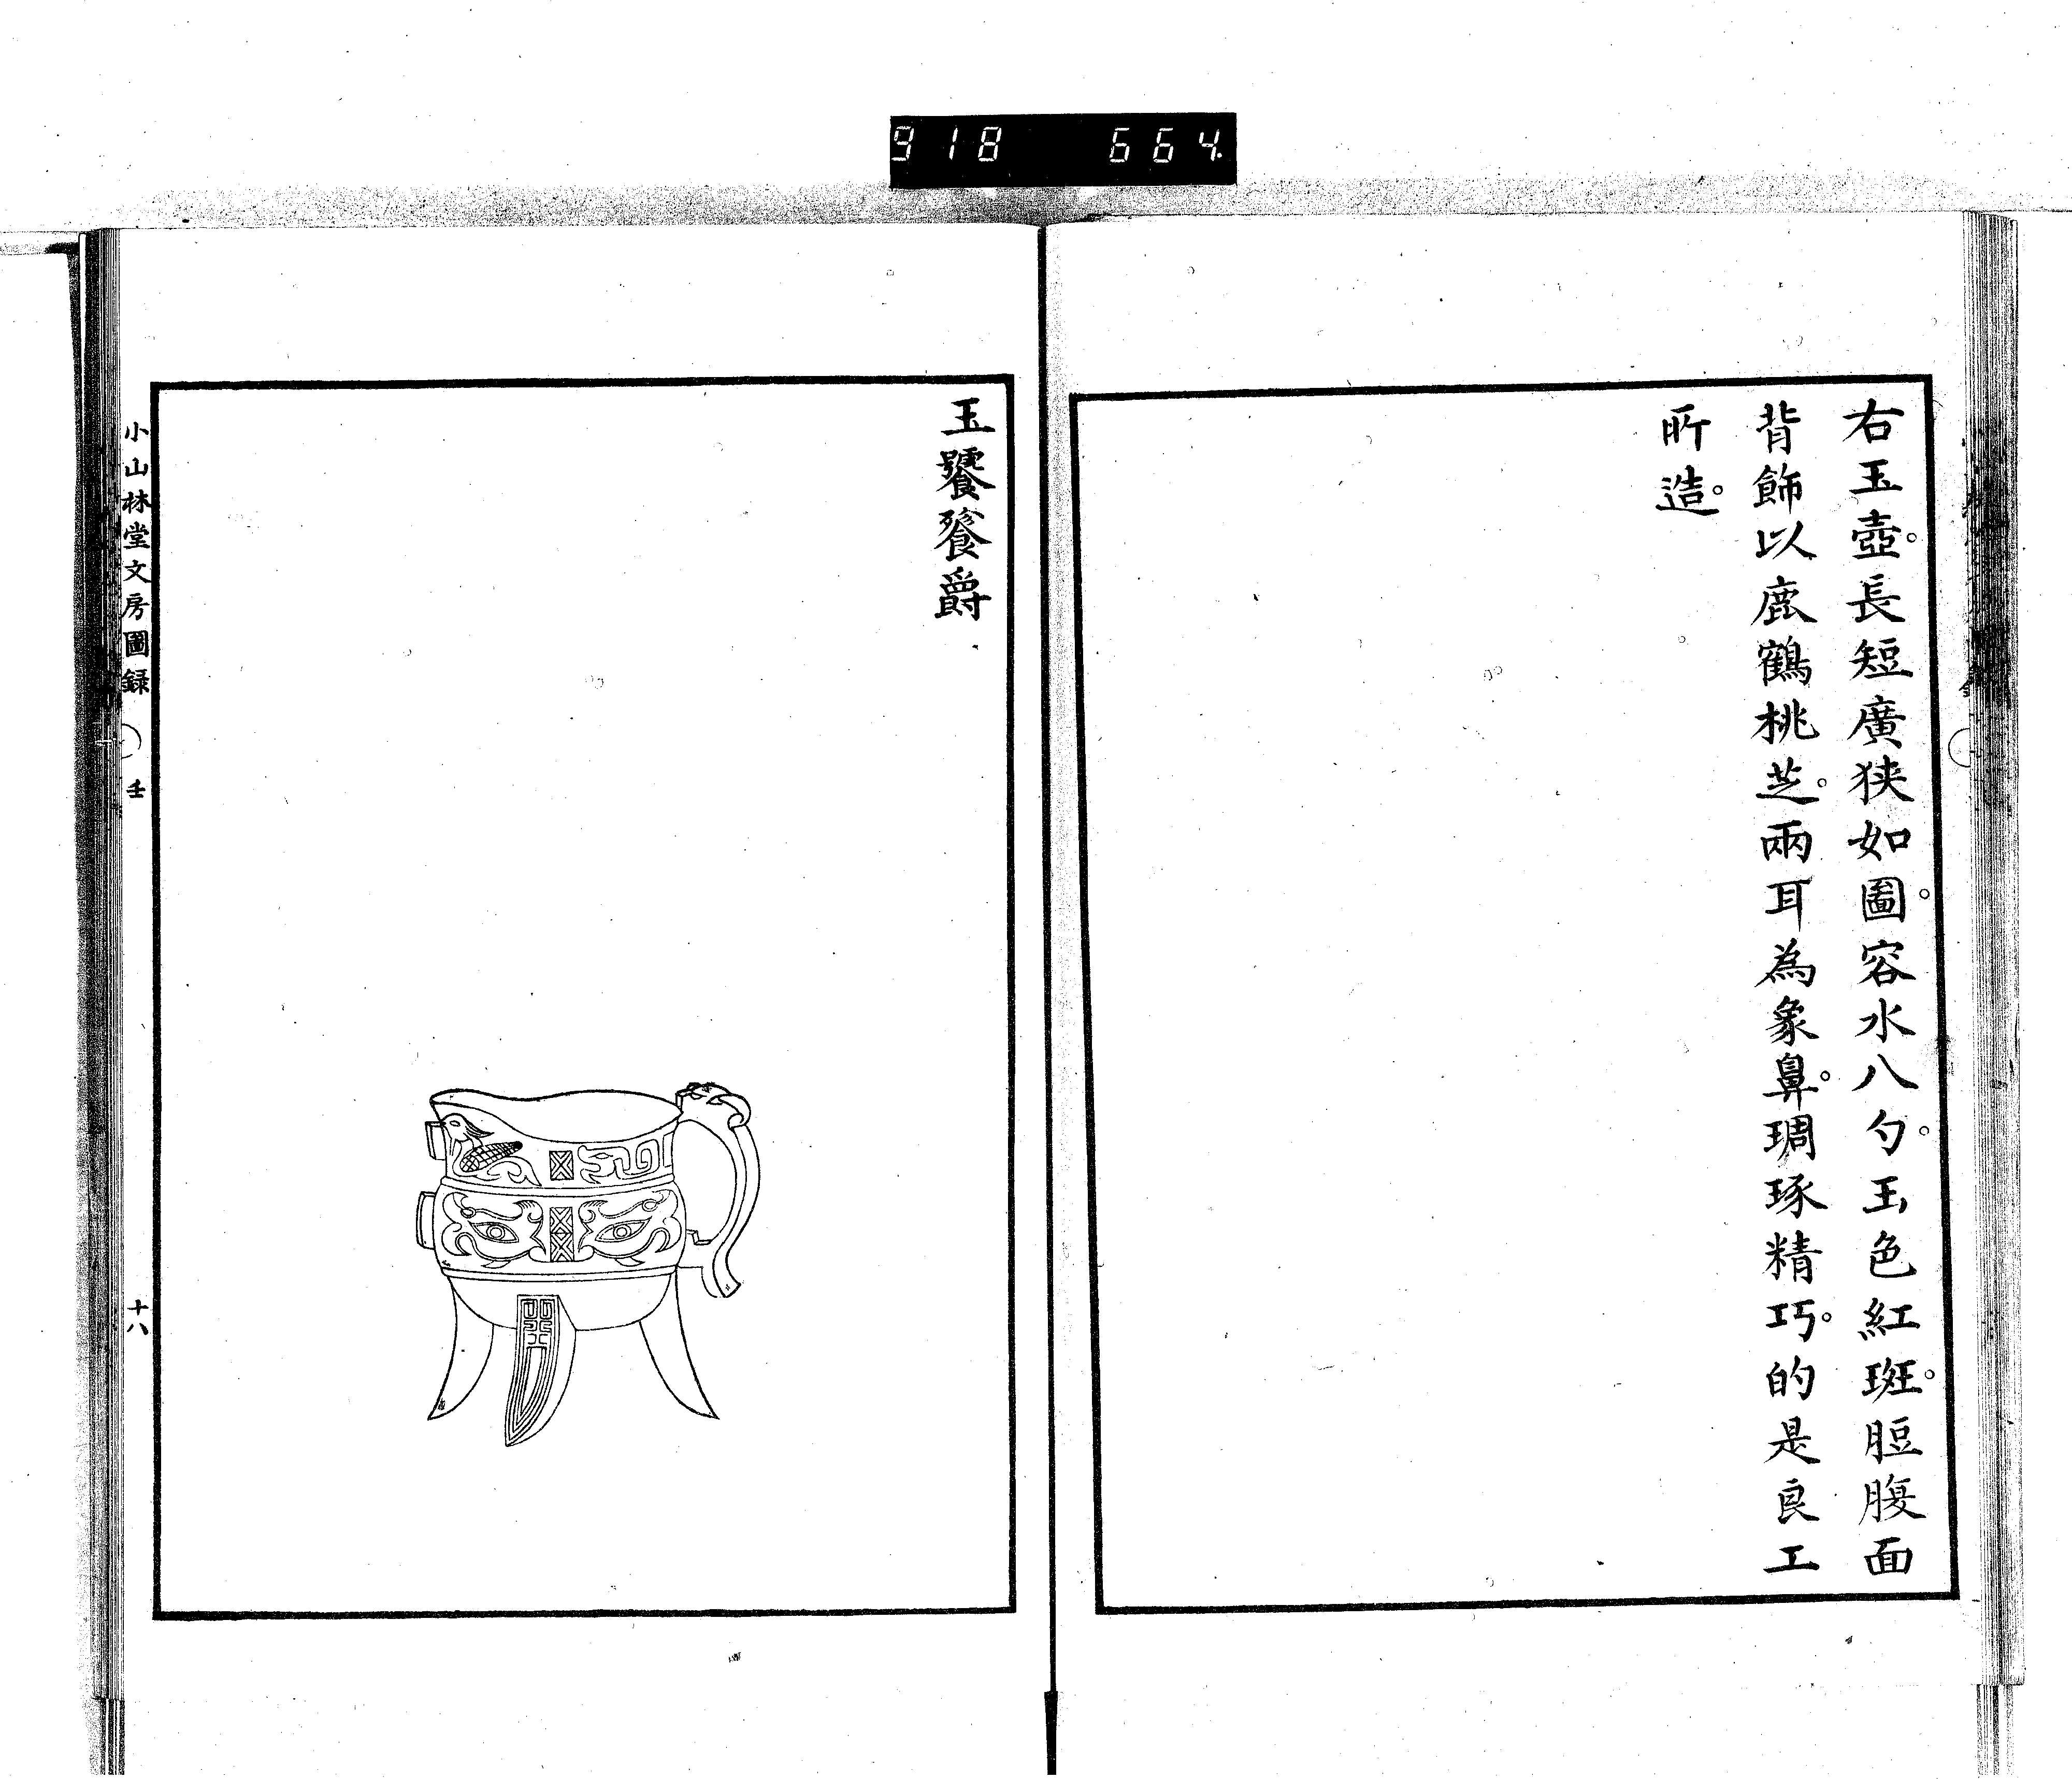 918 664.
右玉壺。長短廣狭如圖。容水八勺。玉色紅斑。脰腹面
背飾以鹿鶴桃芝。兩耳為象鼻。琱琢精巧。的是良工
所造。
玉饕餮爵
小山林堂文房圖録 壬 十八